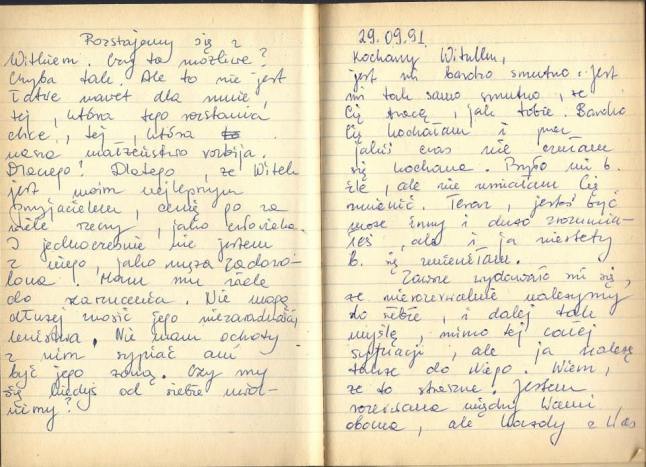 Rozstajemy się z
Witkiem. Czy to możliwe?
Chyba tak. Ale to nie jest
łatwe nawet dla mnie,
tej, która tego rozstania
chce, tej, która to
nasze małżeństwo rozbija.
Dlaczego? Dlatego, że Witek
jest moim najlepszym
przyjacielem, cenię go za
wiele rzeczy, jako człowieka.
I jednocześnie nie jestem
z niego, jako męża zadowo-
lona. Mam mu wiele
do zarzucenia. Nie mogę
dłużej znosić jego niezaradności,
lenistwa. Nie mam ochoty
z nim sypiać ani
być jego żoną. Czy my
się kiedyś od siebie uwol-
nimy?
29.09.91.
Kochany Witulku,
jest mi bardzo smutno. Jest
mi tak samo smutno, że
Cię tracę, jak tobie. Bardzo
Cię kochałam i przez
jakiś czas nie czułam
się kochana. Było mi b.
źle, ale nie umiałam Cię
zmienić. Teraz, jesteś być
może inny i dużo zrozumia-
łeś, ale i ja niestety
b. się zmieniłam.
Zawsze wydawało mi się,
że nierozerwalnie należymy
do siebie, i dalej tak
myślę, mimo tej całej
sytuacji, ale ja należę
także do niego. Wiem,
że to straszne. Jestem
rozerwana między Wami
oboma, ale każdy z Was